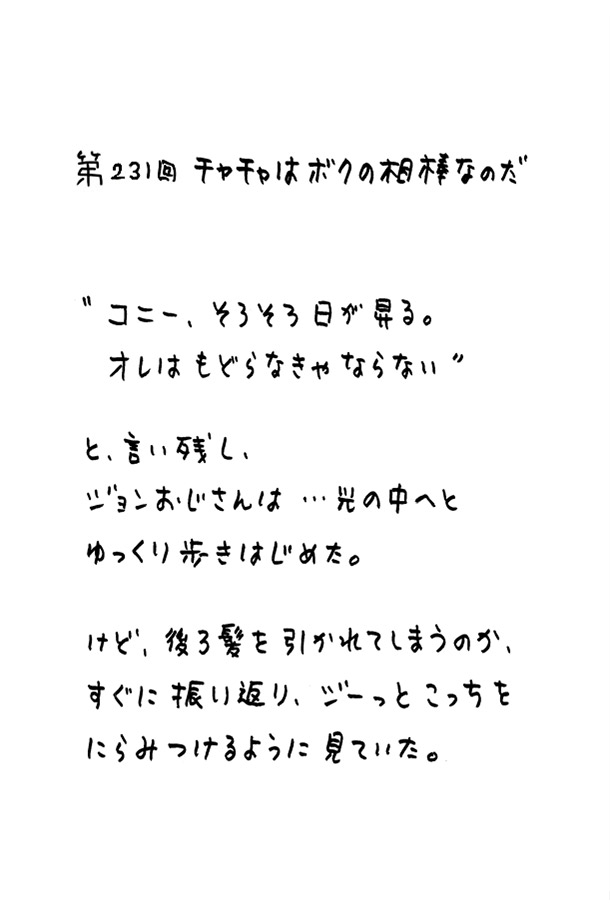 第231回 チャチャはボクの相棒なのだ
〝コニー、そろそろ日が昇る。
オレはもどらなきゃならない〟
と、言い残し、
ジョンおじさんは…光の中へと
ゆっくり歩きはじめた。
けど、後ろ髪を引かれてしまうのか、
すぐに振り返り、ジーっとこっちを
にらみつけるように見ていた。